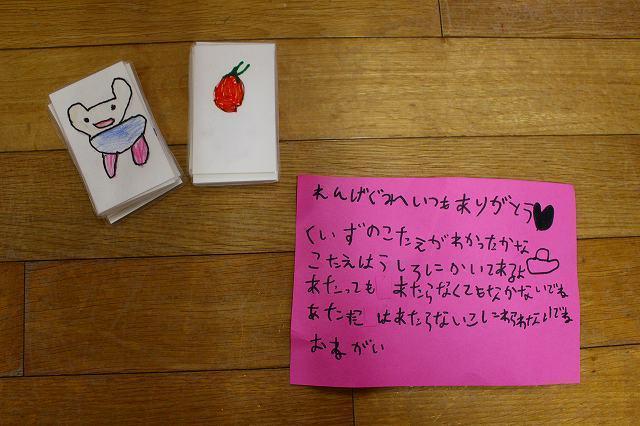 れんげぐみへいつもありがとう
くいずのこたえがわかったかな
こたえはうしろにかいてあるよ
あたっても あたらなくてもなかないでね
あたた はあたらないこにわらわないでね
おねがい